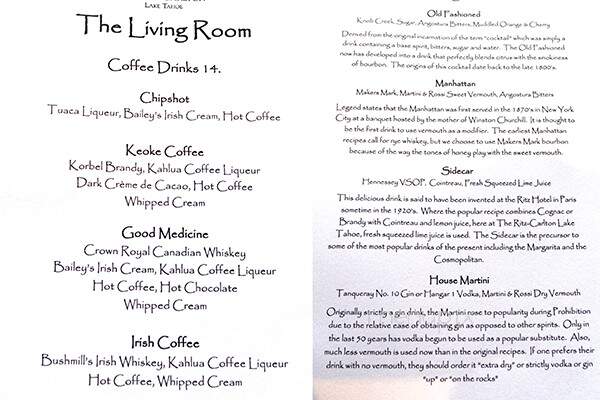 LAKE TAHOE
The Living Room
Coffee Drinks 14.
Chipshot
Tuaca Liqueur, Bailey's Irish Cream, Hot Coffee
Keoke Coffee
Korbel Brandy, Kahlua Coffee Liqueur
Dark Crème de Cacao, Hot Coffee
Whipped Cream
Good Medicine
Crown Royal Canadian Whiskey
Bailey's Irish Cream, Kahlua Coffee Liqueur
Hot Coffee, Hot Chocolate
Whipped Cream
Irish Coffee
Bushmill's Irish Whiskey, Kahlua Coffee Liqueur
Hot Coffee, Whipped Cream
Old Fashioned
Knob Creek, Sugar, Angostura Bitters, Muddled Orange & Cherry
Derived from the original incarnation of the term "cocktail" which was simply a
drink containing a base spirit, bitters, sugar and water. The Old Fashioned
now has developed into a drink that perfectly blends citrus with the smokiness
of bourbon. The origins of this cocktail date back to the late 1800's.
Manhattan
Makers Mark, Martini & Rossi Sweet Vermouth, Angostura Bitters
Legend states that the Manhattan was first served in the 1870's in New York
City at a banquet hosted by the mother of Winston Churchill. It is thought to
be the first drink to use vermouth as a modifier. The earliest Manhattan
recipes call for rye whiskey, but we choose to use Makers Mark bourbon
because of the way the tones of honey play with the sweet vermouth.
Sidecar
Hennessy VSOP, Cointreau, Fresh Squeezed Lime Juice
This delicious drink is said to have been invented at the Ritz Hotel in Paris
sometime in the 1920's. Where the popular recipe combines Cognac or
Brandy with Cointreau and lemon juice, here at The Ritz-Carlton Lake
Tahoe, fresh squeezed lime juice is used. The Sidecar is the precursor to
some of the most popular drinks of the present including the Margarita and the
Cosmopolitan.
House Martini
Tanqueray No. 10 Gin or Hangar 1 Vodka, Martini & Rossi Dry Vermouth
Originally strictly a gin drink, the Martini rose to popularity during Prohibition
due to the relative ease of obtaining gin as opposed to other spirits. Only in
the last 50 years has vodka begun to be used as a popular substitute. Also,
much less vermouth is used now than in the original recipes. If one prefers their
drink with no vermouth, they should order it "extra dry" or strictly vodka or gin
"up" or "on the rocks"